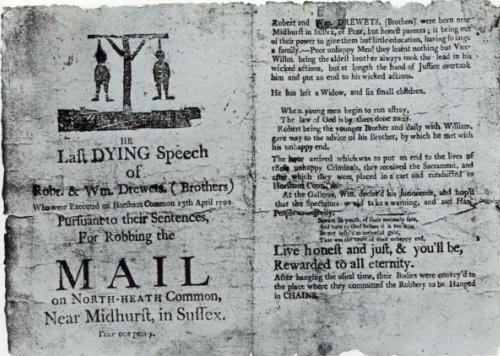 HE
Laſt DYING Speech
of
Robt. & Wm. Drewets, (Brothers)
Who were Executed on Horſham Common 13th April 1799
Purſuant to their Sentences,
For Robbing the
MAIL
on NORTH-HEATH Common,
Near Midhurſt, in Suſſex.
Price one penny.
Robert and Wm. DREWETS, (Brothers) were born near
Midhurſt in Suſſex, of Poor, but honeſt parents; it being out
of their power to give them but little education, having ſo large
a family.—Poor unhappy Men! they learnt nothing but Vice-
Willm. being the eldeſt brother always took the lead in his
wicked actions, but at length the hand of Juſtice overtook
him and put an end to his wicked actions.
He has left a Widow, and ſix ſmall children.
When young men begin to run aſtray,
The law of God is by them done away.
Robert being the younger Brother and daily with William,
gave way to the advice of his Brother, by which he met with
his unhappy end.
The hour arrived which was to put an end to the lives of
theſe unhappy Criminals, they received the Sacrament, and
after which they were placed in a cart and conducted to
Horſham Common
At the Gallows, Wm. declar'd his Innocence, and hop'd
that the Spectators would take a warning, and not Hang
People wrongly;
Beware in youth, of their untimely fate,
And turn to God before it is too late
That was the cauſe of their unhappy end,
Live honeſt and juſt, & you'll be,
Rewarded to all eternity.
After hanging the uſual time, their Bodies were convey'd to
the place where they committed the Robbery to be Hanged
in CHAINS.